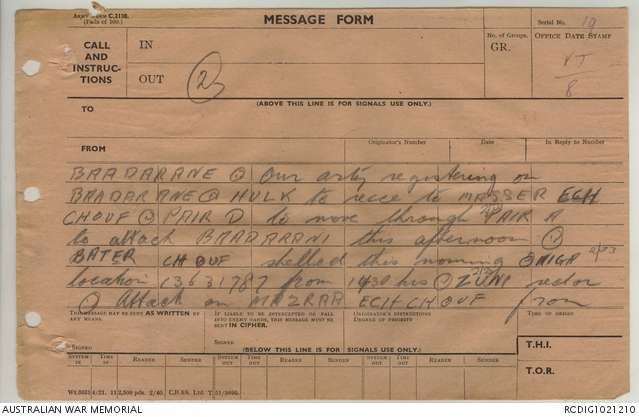 Army Form C.2128.
(Pads of 100.)
MESSAGE FORM
Serial No. 19
CALL
AND
INSTRUC-
TIONS
IN
OUT
2
No. of Groups.
GR.
OFFICE DATE STAMP
VJ
8
(ABOVE THIS LINE IS FOR SIGNALS USE ONLY.)
TO
FROM
Originator's Number
Date
In Reply to Number
BAADARANE Our arty registering on
BAADARANE HULK to recce to MASSER ECH
CHOUF PAIR D to move through PAIR A
to attack BAADARANI this afternoon
BATER CHOUF shelled this morning
location 13631787 from 1430 hrs ZUNI sector
Attack on MAZRAA ECH CHOUF from
THIS MESSAGE MAY BE SENT AS WRITTEN BY
ANY MEANS.
IF LIABLE TO BE INTERCEPTED OR FALL
INTO ENEMY HANDS, THIS MESSAGE MUST BE
SENT IN CIPHER.
ORIGINATOR'S INSTRUCTIONS
DEGREE OF PRIORITY
TIME OF ORIGIN
SIGNED
SIGNED
(BELOW THIS LINE IS FOR SIGNALS USE ONLY.)
T.H.I.
SYSTEM IN
TIME IN
READER
SENDER
SYSTEM OUT
TIME OUT
READER
SENDER
SYSTEM OUT
TIME OUT
READER
SENDER
T.O.R.
AUSTRALIAN WAR MEMORIAL
RCDIG1021210